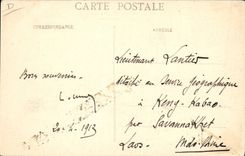 D
CARTE POSTALE
CORRESPONDANCE
ADRESSE
Lieutenant
Bons souvenirs
détaché au Service Géographique
à Keng-Kabao
20-4-1913
par Savannakhet
Laos Indo-Chine